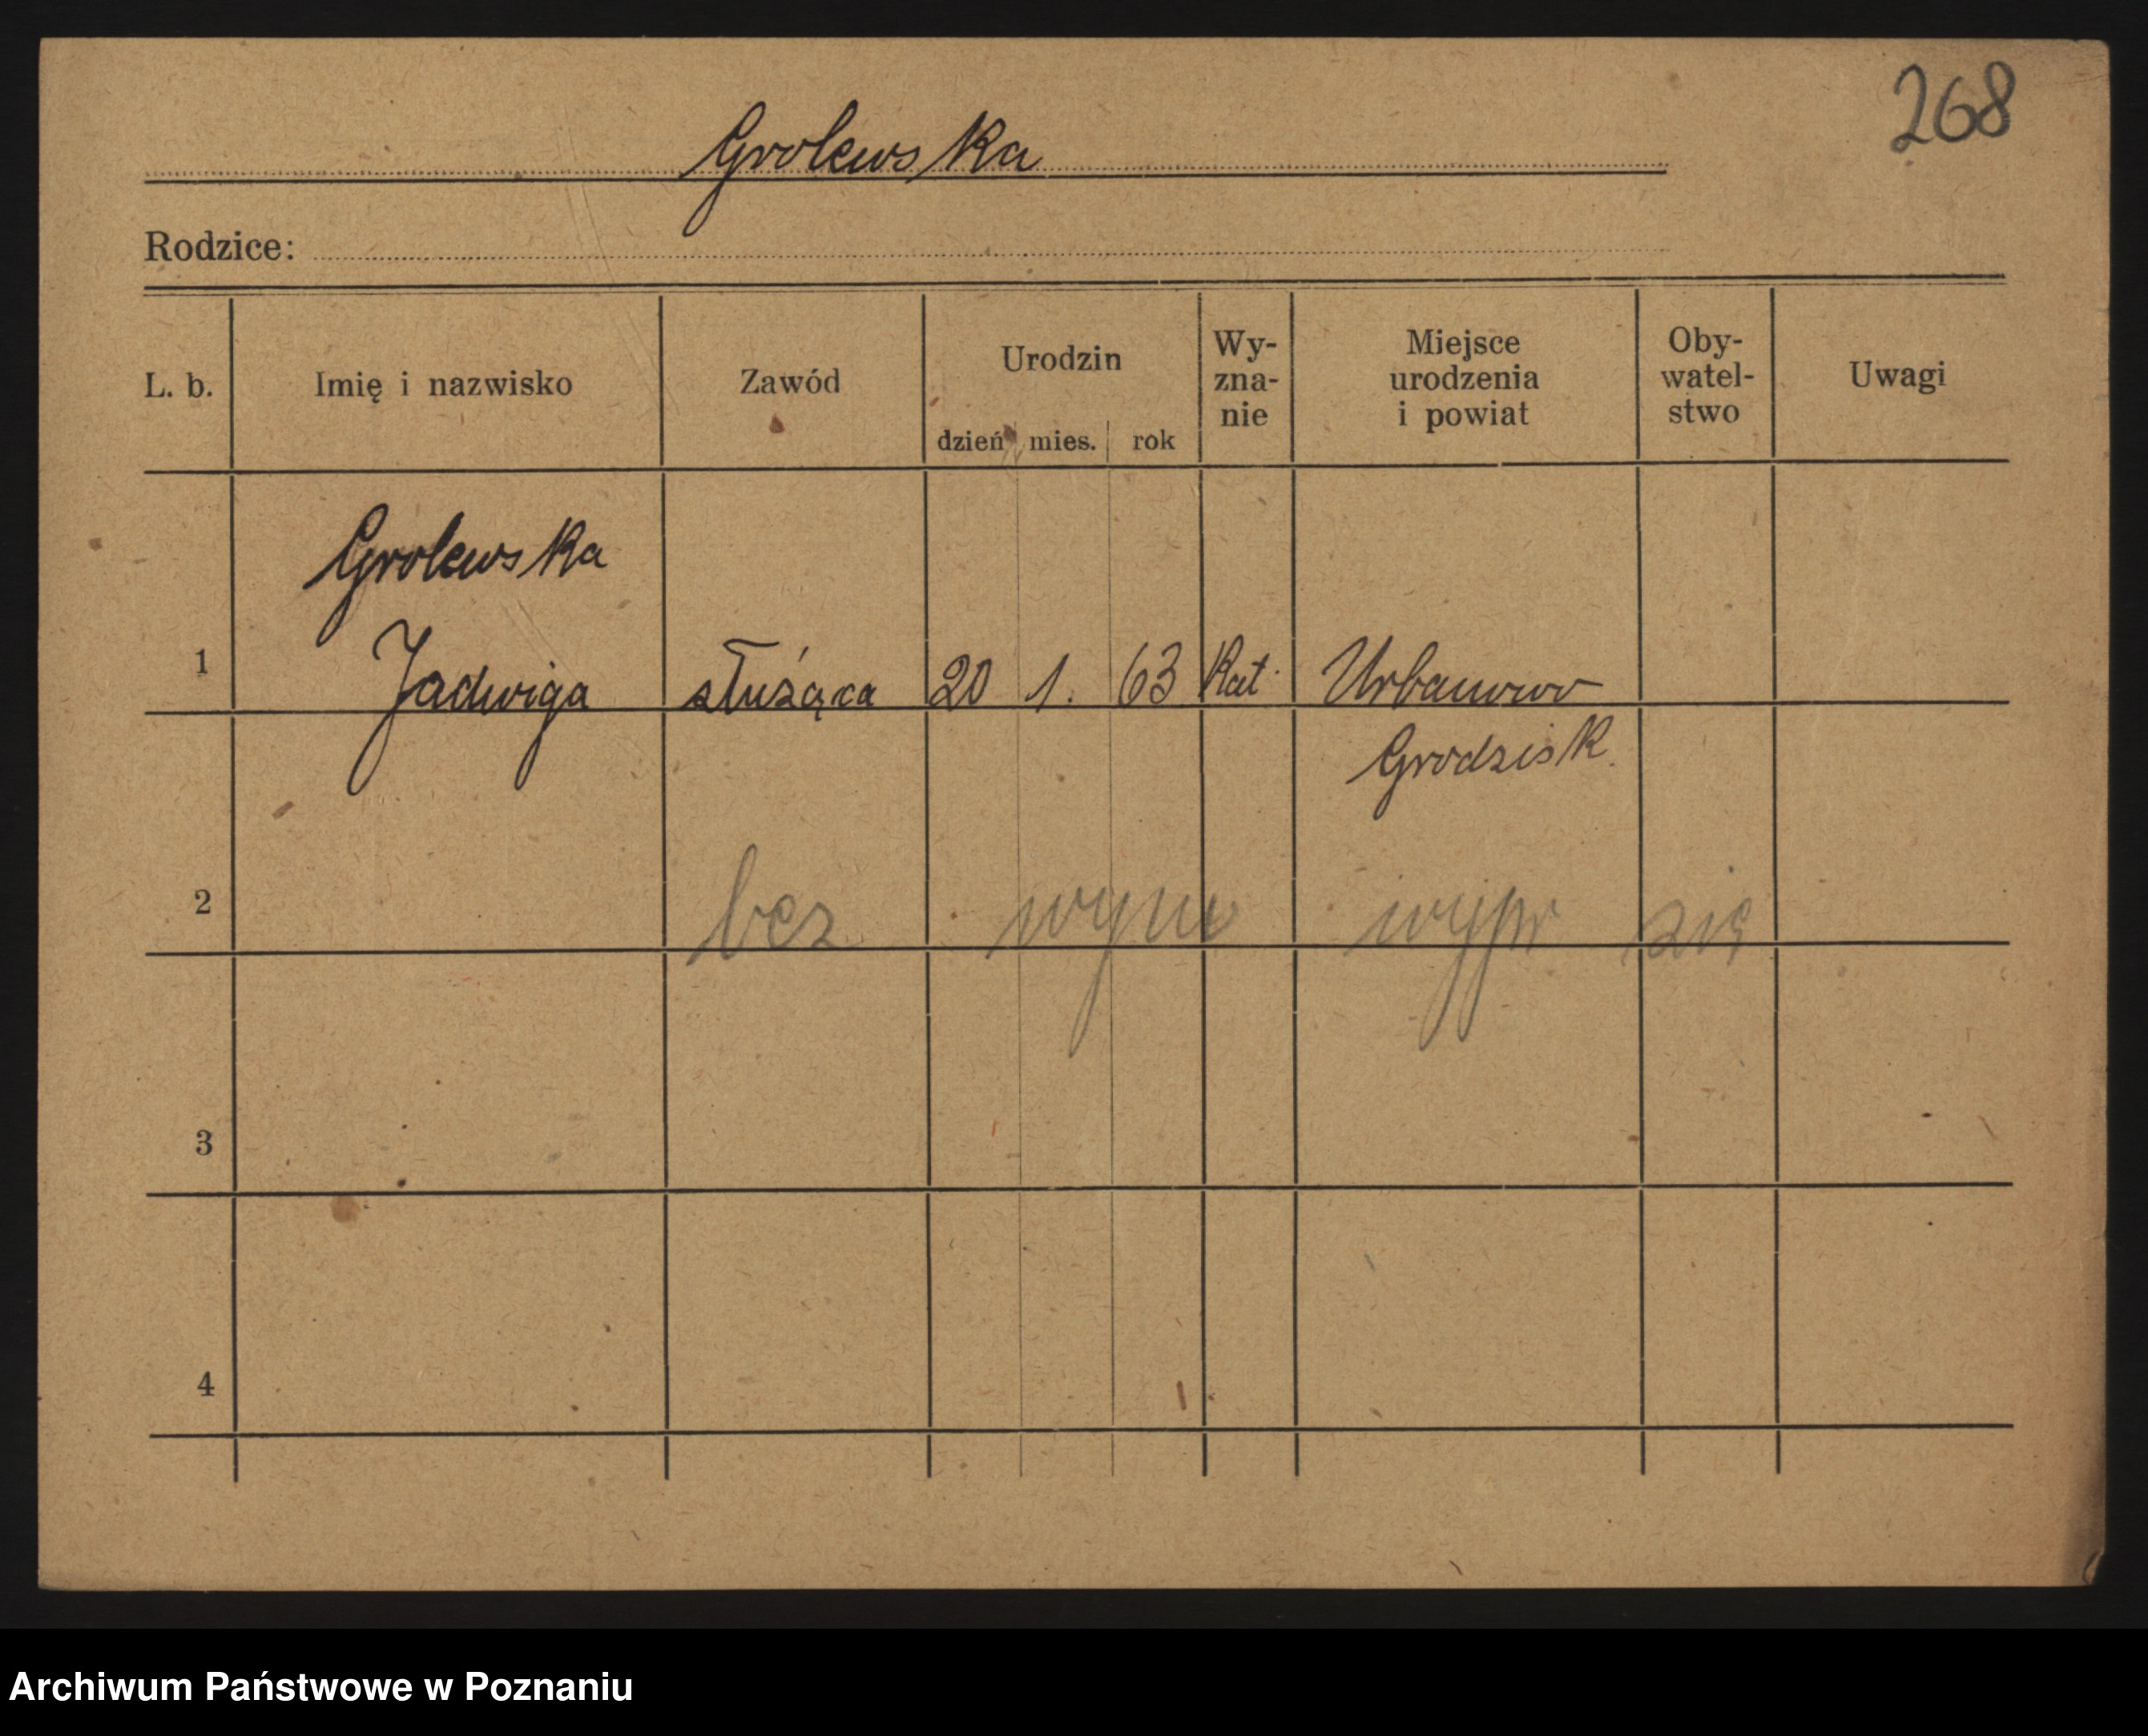 268
Grolewska
Rodzice:
L. b. Imię i nazwisko Zawód Urodzin dzień mies. rok Wy-zna-nie Miejsce urodzenia i powiat Oby-watel-stwo Uwagi
Grolewska
1 Jadwiga służąca 20 1. 63 Kat. Urbanowo
Grodzisk.
2 bez wym wypr się
3
4
Archiwum Państwowe w Poznaniu